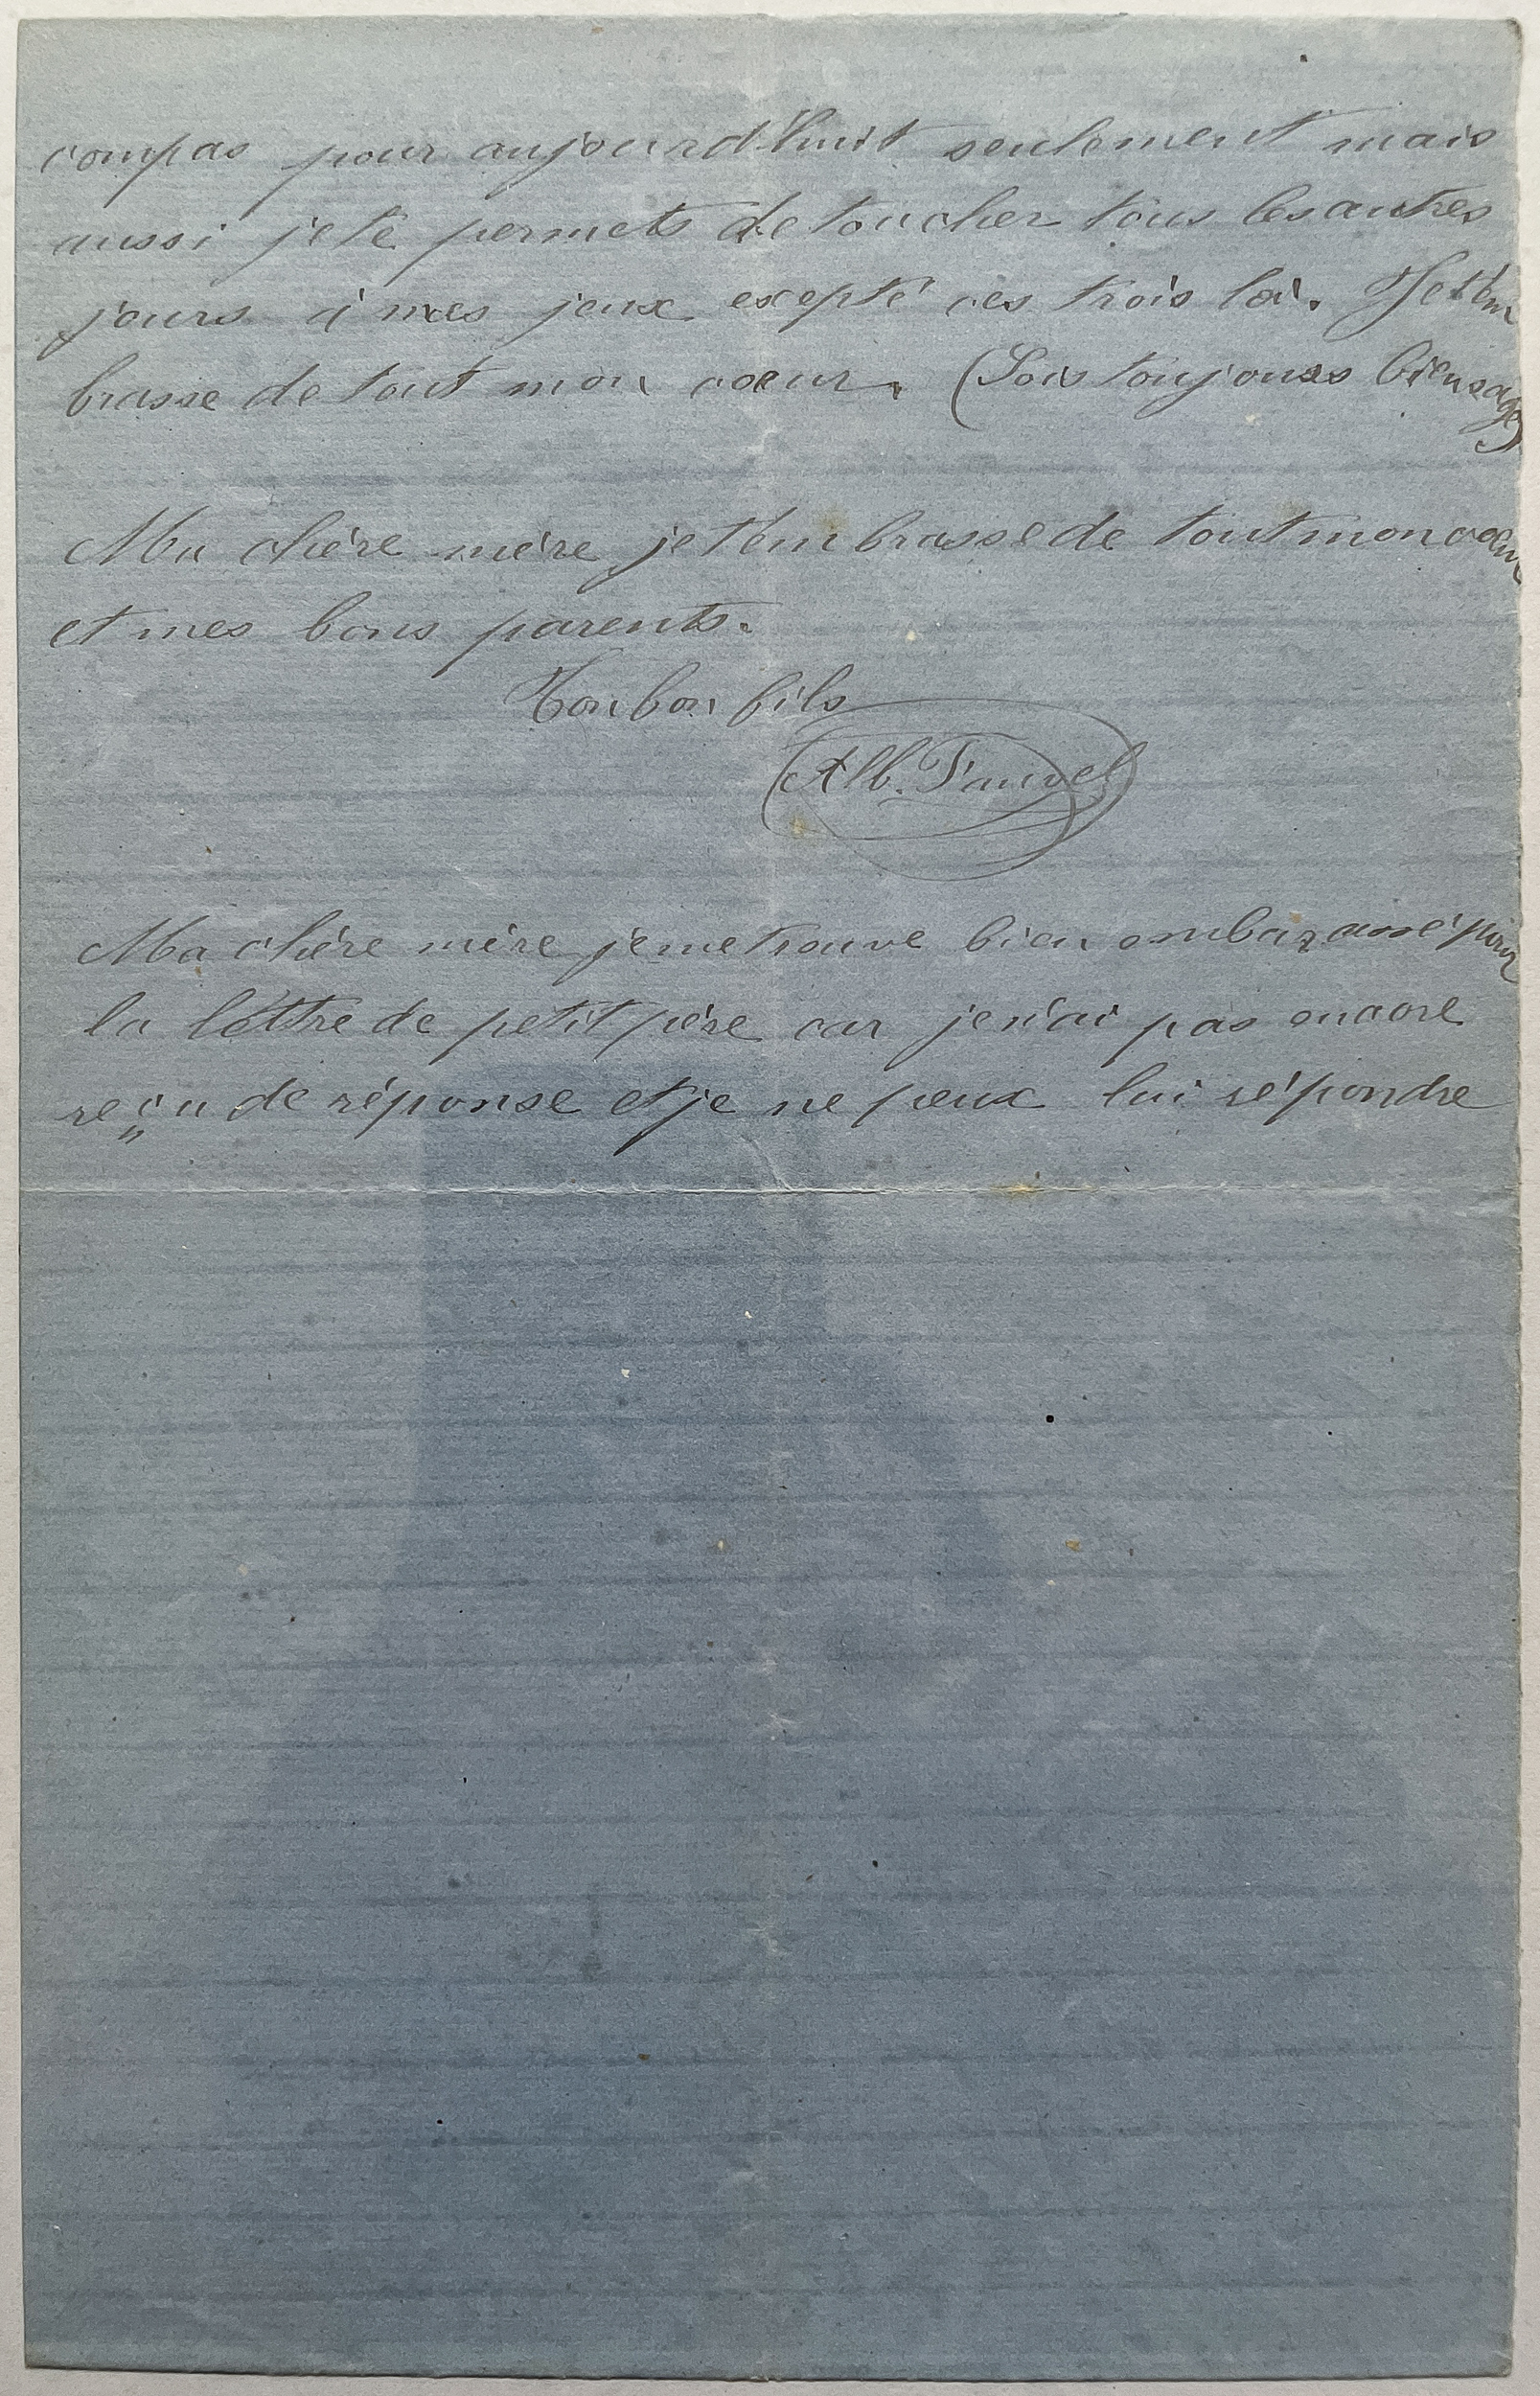 compas pour aujourd'huit seulement mais
aussi je te permets de toucher tous les autres
jours à mes jeux exepté ces trois là. Je t'em
brasse de tout mon cœur. (Sois toujours bien sage)
Ma chère mère je t'embrasse de tout mon cœur
et mes bons parents.
Ton bon fils
Alb. Fauvel
Ma chère mère je me trouve bien embarassé pour
la lettre de petit père car je n'ai pas encore
reçu de réponse et je ne peux lui répondre